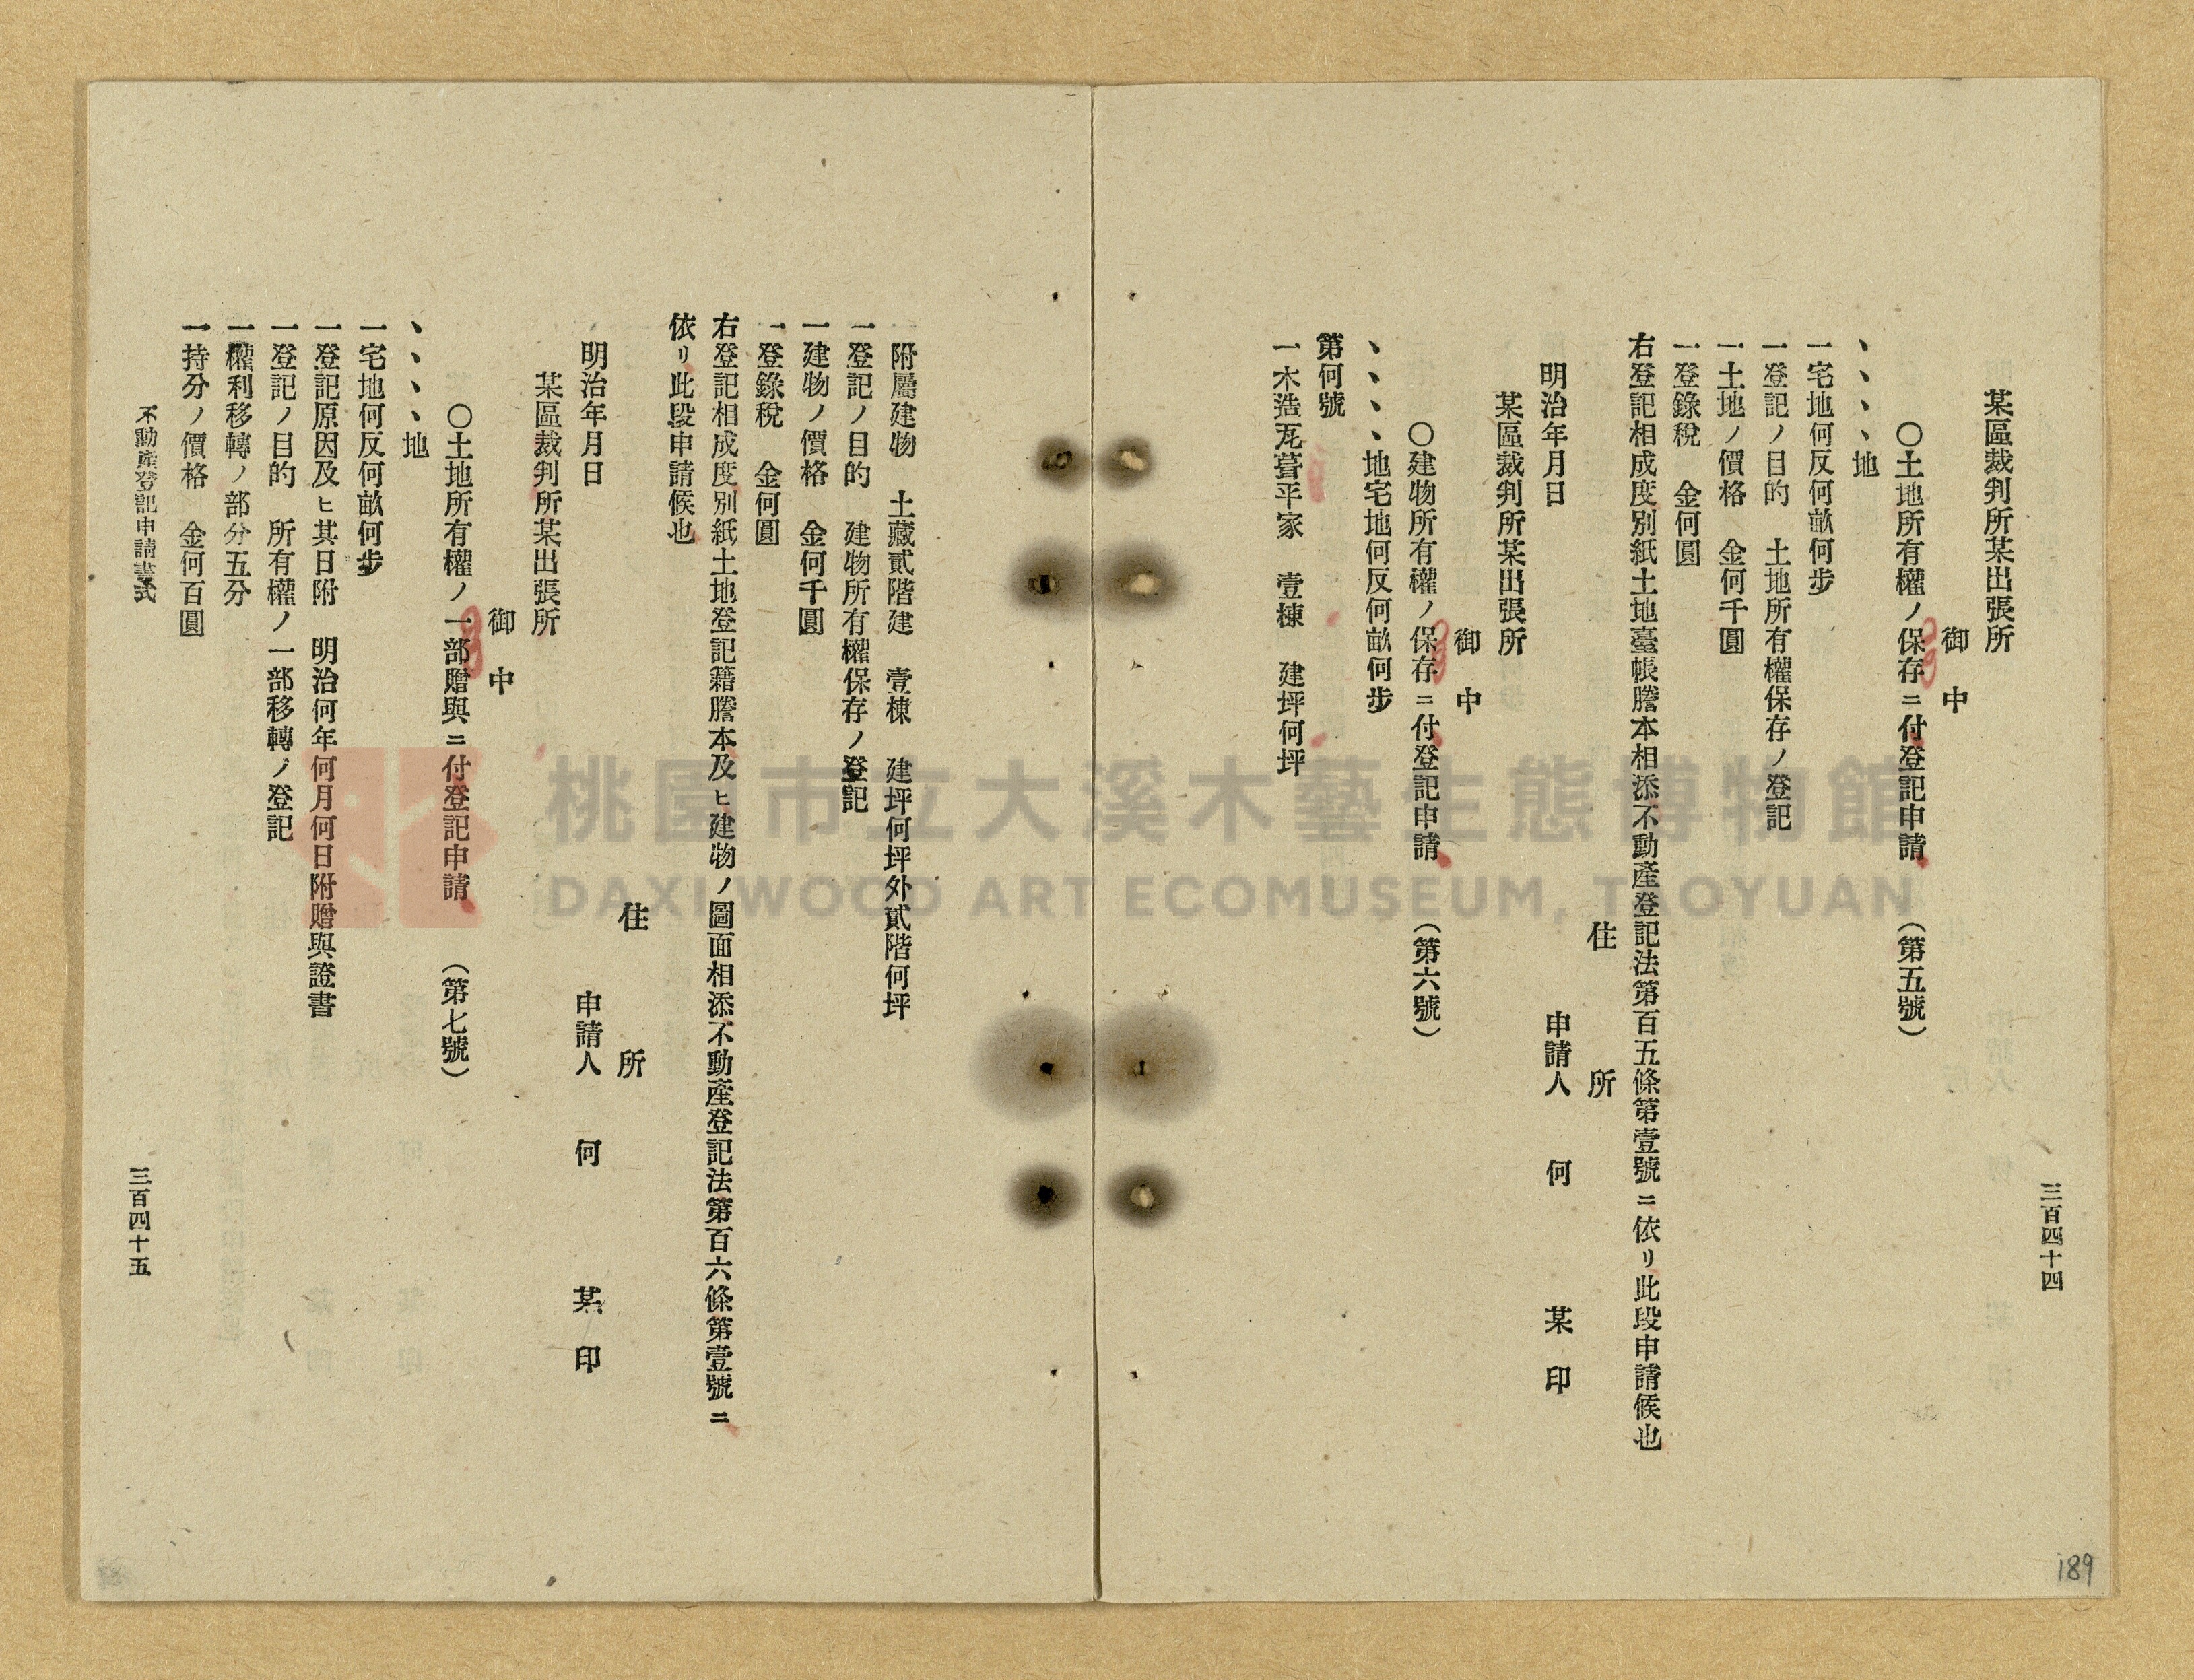 三百四十四
某區裁判所某出張所
御中
〇土地所有權ノ保存ニ付登記申請 (第五號)
、、、、地
一宅地何反何畝何步
一登記ノ目的 土地所有權保存ノ登記
一土地ノ價格 金何千圓
一登錄稅 金何圓
右登記相成度別紙土地臺帳謄本相添不動產登記法第百五條第壹號ニ依リ此段申請候也
住所
明治年月日 申請人 何 某 印
某區裁判所某出張所
御中
〇建物所有權ノ保存ニ付登記申請 (第六號)
、、、、地宅地何反何畝何步
第何號
一木造瓦葺平家 壹棟 建坪何坪
附屬建物 土藏貳階建 壹棟 建坪何坪外貳階何坪
一登記ノ目的 建物所有權保存ノ登記
一建物ノ價格 金何千圓
一登錄稅 金何圓
右登記相成度別紙土地登記籍謄本及ヒ建物ノ圖面相添不動產登記法第百六條第壹號ニ
依リ此段申請候也
住所
明治年月日 申請人 何 某 印
某區裁判所某出張所
御中
〇土地所有權ノ一部贈與ニ付登記申請 (第七號)
、、、、地
一宅地何反何畝何步
一登記原因及ヒ其日附 明治何年何月何日附贈與證書
一登記ノ目的 所有權ノ一部移轉ノ登記
一權利移轉ノ部分五分
一持分ノ價格 金何百圓
不動產登記申請書式 三百四十五
189
桃園市立大溪木藝生態博物館
DAXI WOOD ART ECOMUSEUM, TAOYUAN